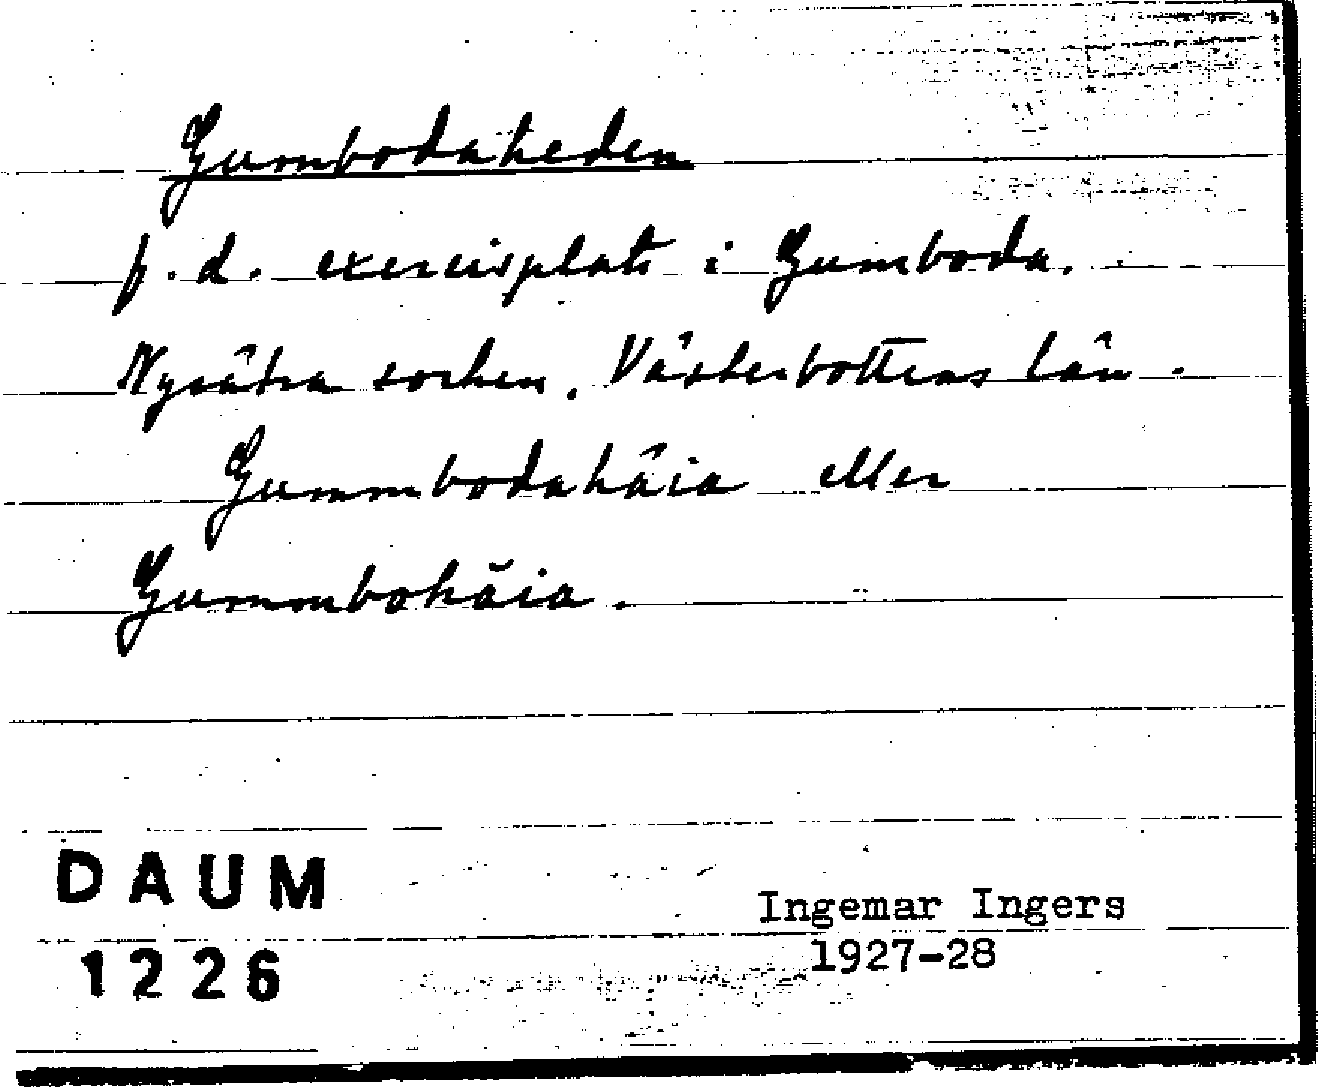 Gumbodaheden
f.d. exercisplats i Gumboda,
Nysätra socken, Västerbottens län.
Gummbodahäia eller
Gummbohäia.
DAUM
1226
Ingemar Ingers
1927-28